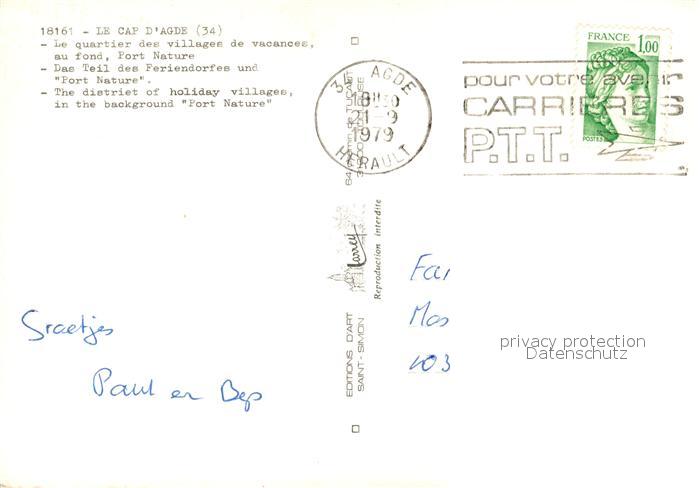 18161 - LE CAP D'AGDE (34)
- Le quartier des villages de vacances,
au fond, Port Nature
- Das Teil des Feriendorfes und
"Port Nature".
- The district of holiday villages,
in the background "Port Nature"
FRANCE 1,00
POSTES
AGDE
18H30
21-9
1979
HERAULT
pour votre avenir
CARRIERES
P.T.T.
Larrey
Reproduction interdite
EDITIONS D'ART
SAINT-SIMON
Graetjes
Paul en Bep
Fai
Mas
103
privacy protection
Datenschutz